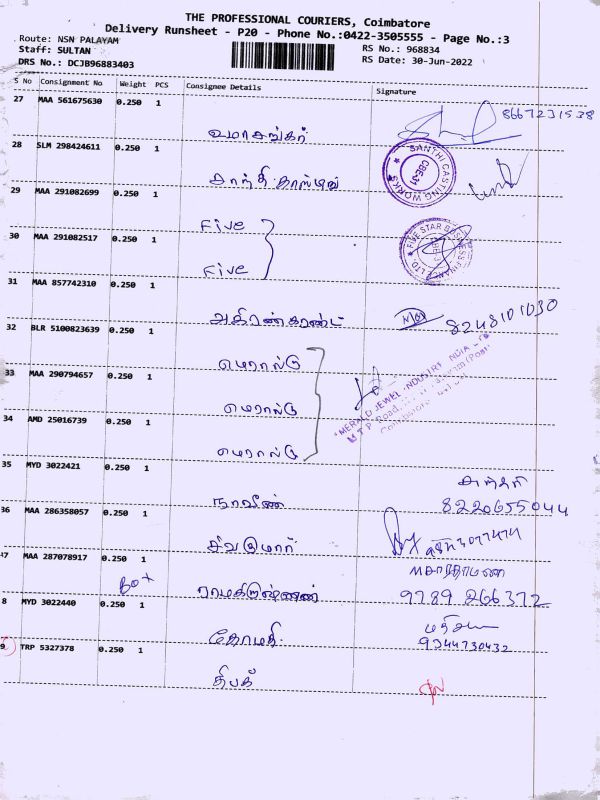 THE PROFESSIONAL COURIERS, Coimbatore
Delivery Runsheet - P20 - Phone No.:0422-3505555 - Page No.:3
Route: NSN PALAYAM
RS No.: 968834
Staff: SULTAN
RS Date: 30-Jun-2022
DRS No.: DCJB96883403
S No Consignment No Weight PCS Consignee Details Signature
27 MAA 561675630 0.250 1
8667231538
உமாசங்கர்
28 SLM 298424611 0.250 1
SANTHI CASTING WORKS
CBE-31
சாந்தி காஸ்டிங்
29 MAA 291082699 0.250 1
Five
30 MAA 291082517 0.250 1
FIVE STAR BUSINESS FINANCE LTD
Five
31 MAA 857742310 0.250 1
8248101030
32 BLR 5100823639 0.250 1
மெரால்டு
33 MAA 290794657 0.250 1
MERALD JEWEL INDUSTRY INDIA LTD
M.T.P. Road,
மெரால்டு
34 AMD 25016739 0.250 1
மெரால்டு
35 MYD 3022421 0.250 1
8220655044
நாவீண்
36 MAA 286358057 0.250 1
சிவகுமார்
47 MAA 287078917 0.250 1
Box
ராமகிருஷ்ணன்
9789 266372
8 MYD 3022440 0.250 1
கோமதி
9344730432
9 TRP 5327378 0.250 1
தீபக்